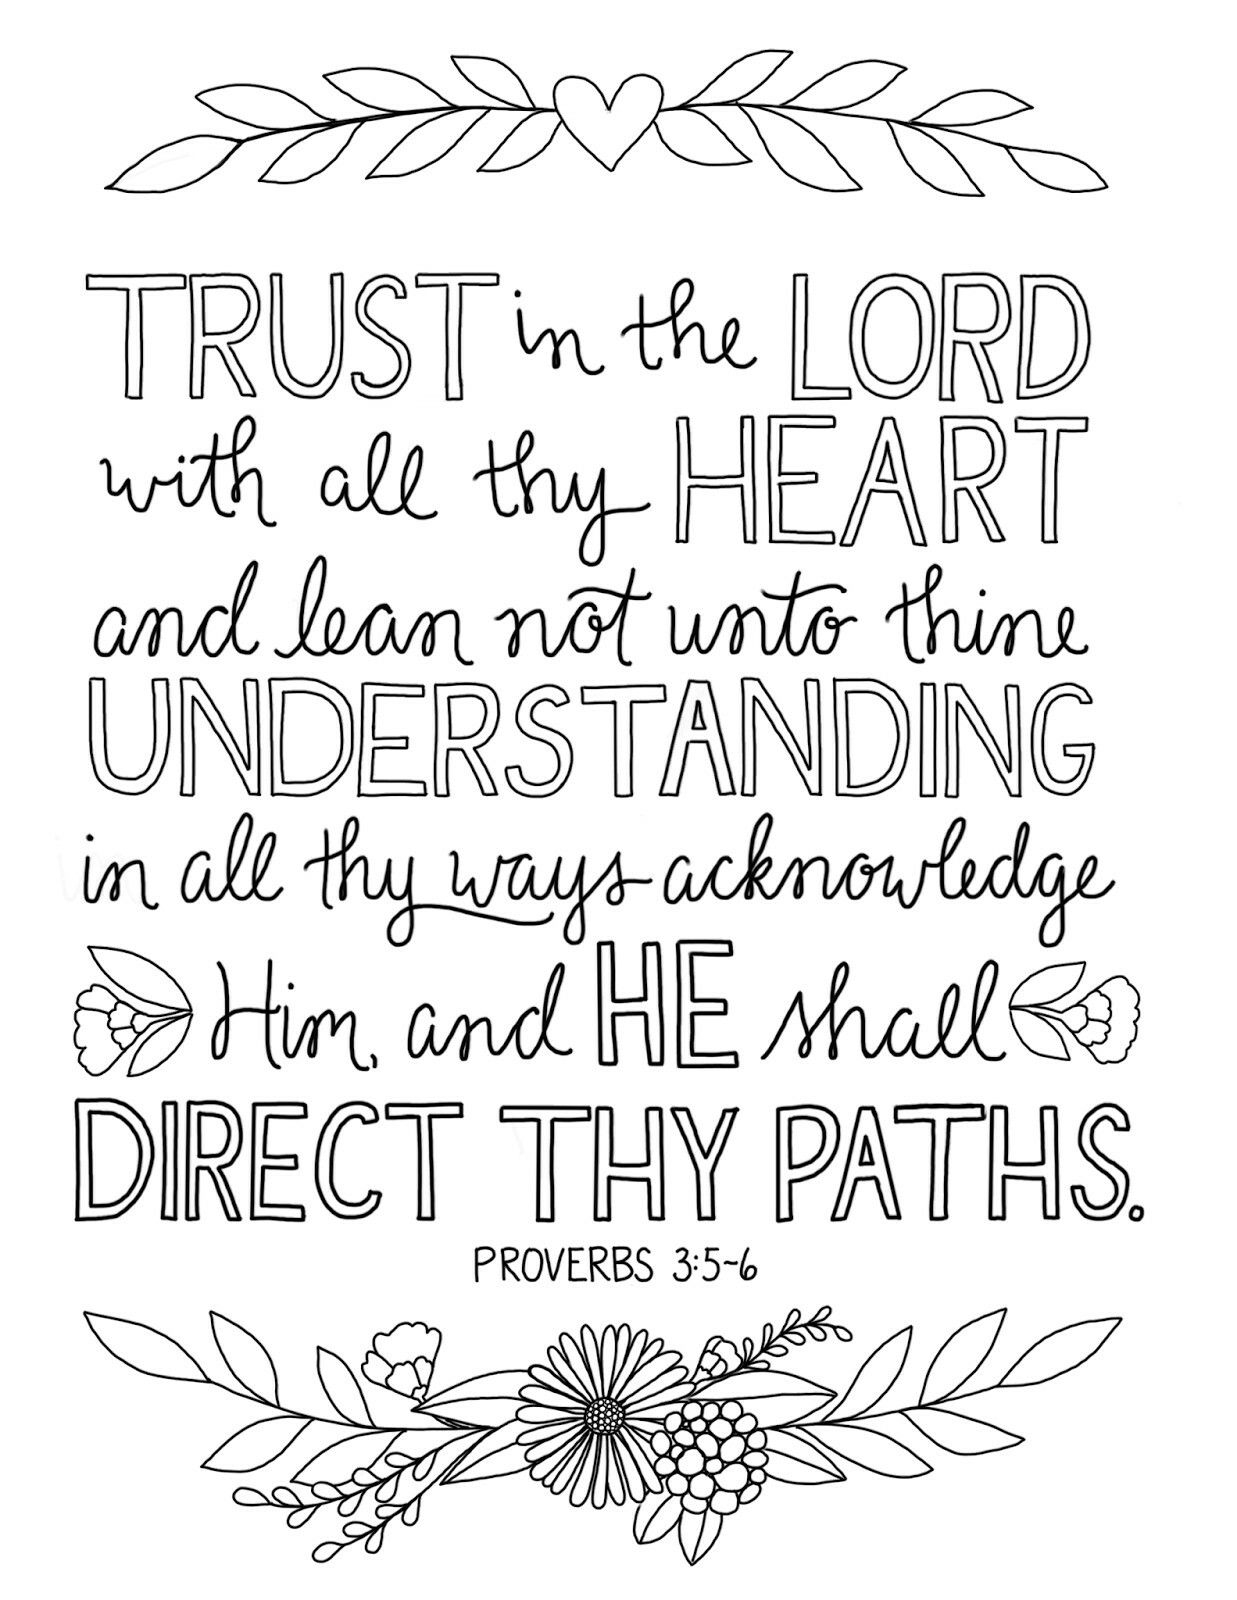 TRUST in the LORD
with all thy HEART
and lean not unto thine
UNDERSTANDING
in all thy ways acknowledge
Him, and HE shall
DIRECT THY PATHS.
PROVERBS 3:5~6